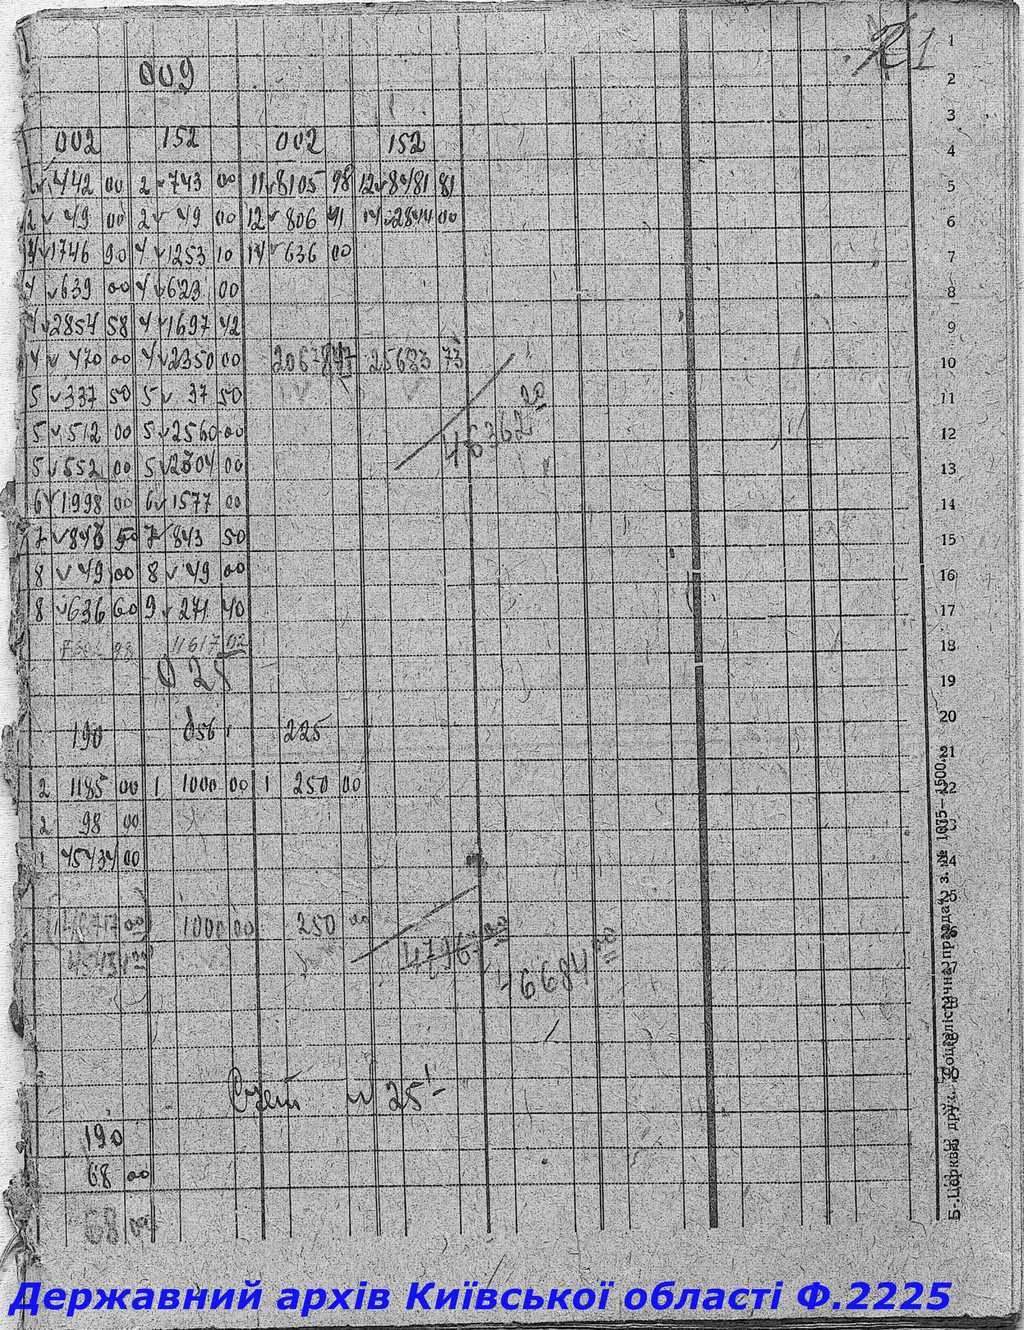 21
009
002 152 002 152
442 00 2 743 00 11 8105 98 12 8481 81
2 49 00 2 49 00 12 806 41 14 2844 00
4 1746 90 4 1253 10 14 636 00
4 639 00 4 623 00
4 2854 58 4 1697 42
4 470 00 4 2350 00 25633 73
5 337 50 5 37 50
46362 20
5 512 00 5 2560 00
5 552 00 5 00
6 1998 00 6 1577 00
7 50 7 843 50
8 49 00 8 49 00
8 636 60 9 271 40
11617 02
025
190 056 225
2 1185 00 1 1000 00 1 250 00
2 98 00
1 45434 00
00 1000 00 250 00
46684 00
Счет № 25
190
68 00
68 00
1
2
3
4
5
6
7
8
9
10
11
12
13
14
15
16
17
18
19
20
21
22
24
25
26
27
Б-Церква друк. „Соціалістична правда“ з. № 1075—1500
Державний архів Київської області Ф.2225